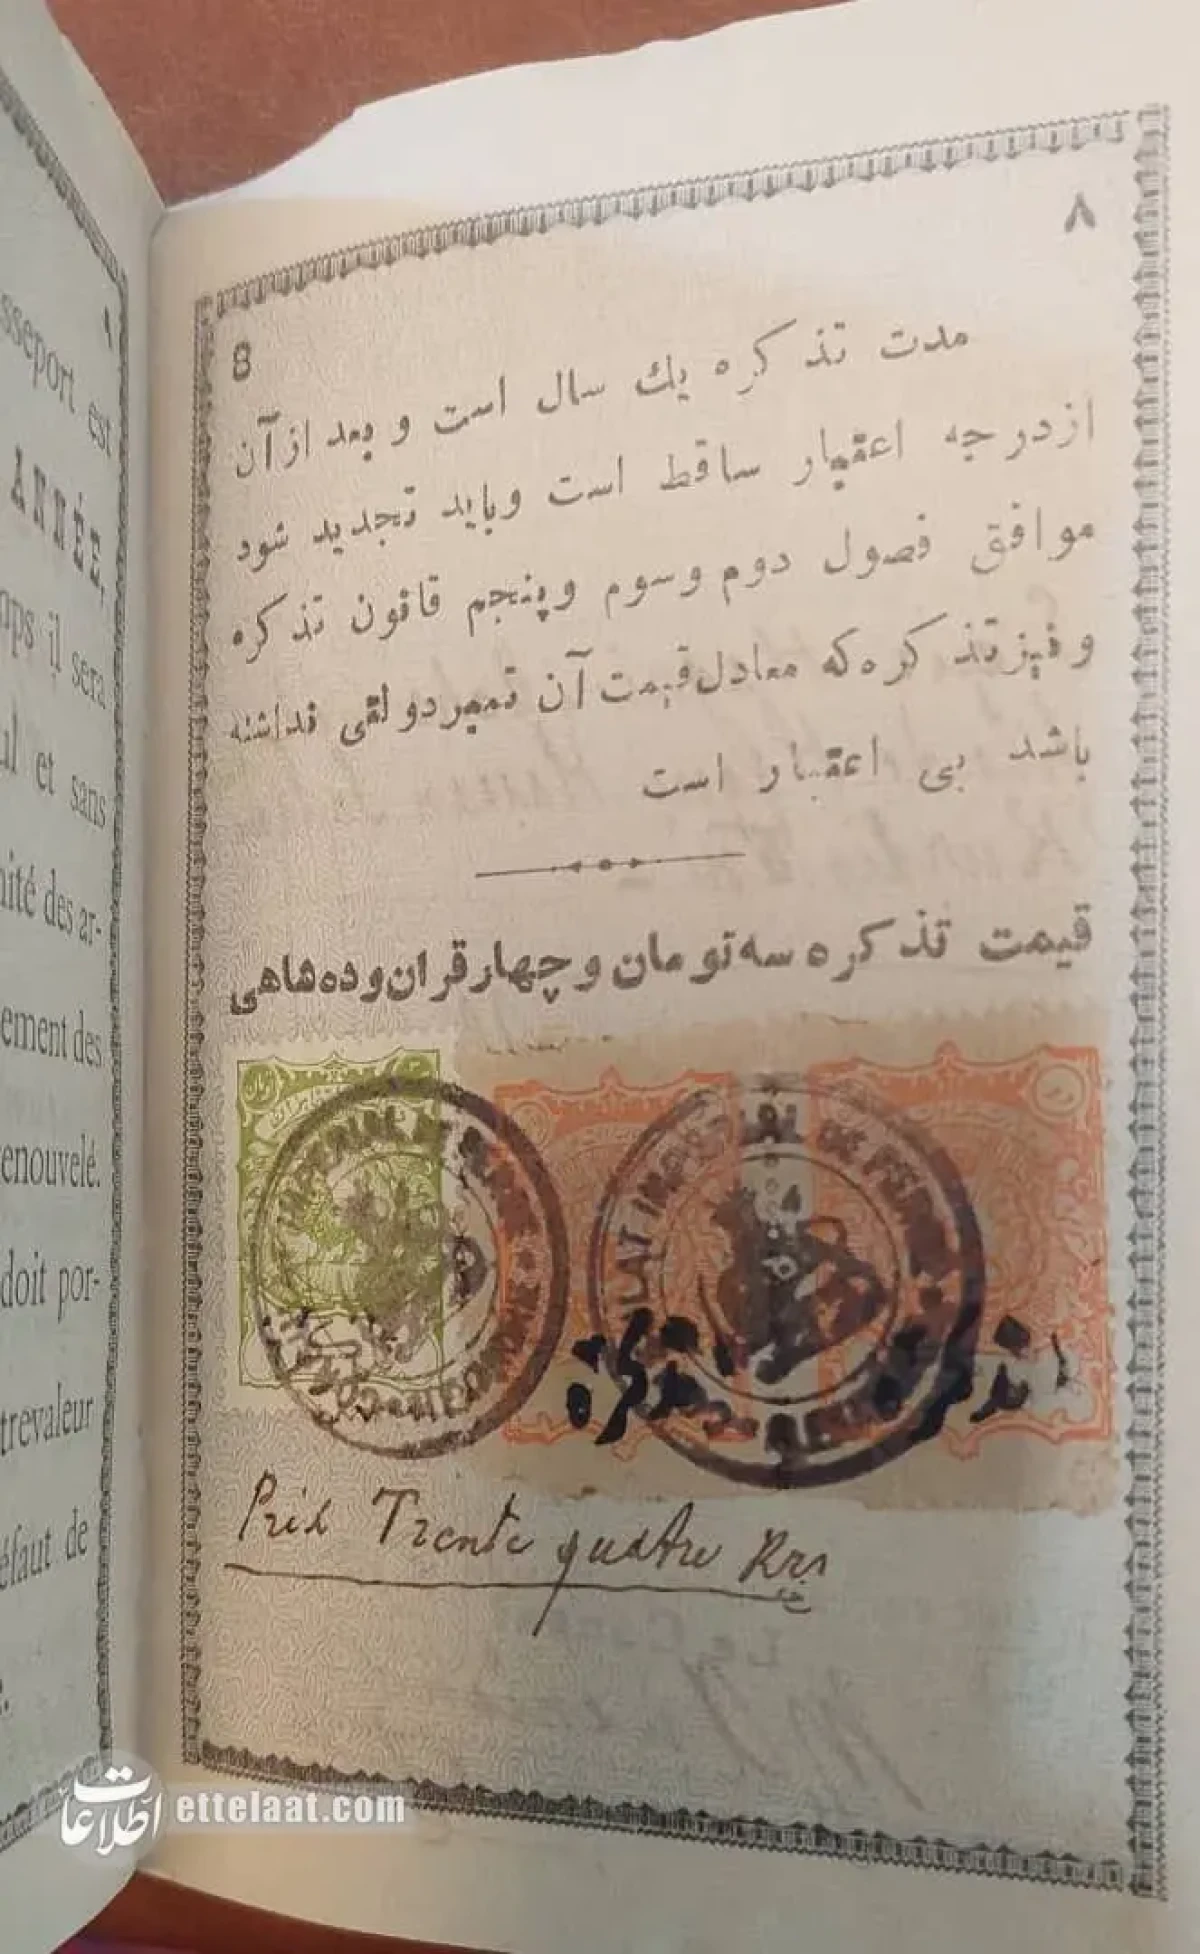 sseport est
ANNÉE,
mps il sera
ul et sans
nité des ar-
sement des
renouvelé.
doit por-
trevaleur
éfaut de
٨
8
مدت تذكره يك سال است و بعد از آن
از درجه اعتبار ساقط است و بايد تجديد شود
موافق فصول دوم و سوم و پنجم قانون تذكره
و نيز تذكره كه معادل قيمت آن تمبر دولتى نداشته
باشد بى اعتبار است
قيمت تذكره سه تومان و چهار قران و ده شاهى
IMPERIAL DE PERSE
تذكره تذكره
Prix Trente quatre Krs
اطلاعات ettelaat.com